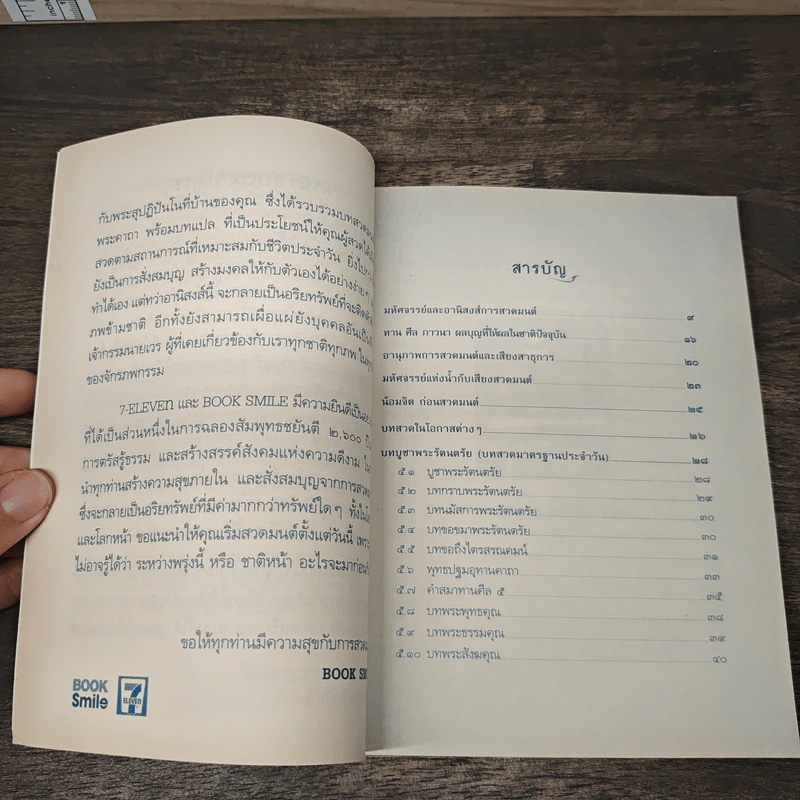 inches
กับพระสุปฏิปันโนที่บ้านของคุณ ซึ่งได้รวบรวมบทสวดมน
พระคาถา พร้อมบทแปล ที่เป็นประโยชน์ให้คุณผู้สวดได้
สวดตามสถานการณ์ที่เหมาะสมกับชีวิตประจำวัน ยิ่งไปกว่า
ยังเป็นการสั่งสมบุญ สร้างมงคลให้กับตัวเองได้อย่างง่าย
ทำได้เอง แต่ทว่าอานิสงส์นี้ จะกลายเป็นอริยทรัพย์ที่จะติดตัว
ภพข้ามชาติ อีกทั้งยังสามารถเผื่อแผ่ยังบุคคลอันเป็น
เจ้ากรรมนายเวร ผู้ที่เคยเกี่ยวข้องกับเราทุกชาติทุกภพ
ของจักรภพกรรม
7-ELEVEN และ BOOK SMILE มีความยินดีเป็น
ที่ได้เป็นส่วนหนึ่งในการฉลองสัมพุทธชยันตี ๒,๖๐๐ ปี
การตรัสรู้ธรรม และสร้างสรรค์สังคมแห่งความดีงาม
นำทุกท่านสร้างความสุขภายใน และสั่งสมบุญจากการสวด
ซึ่งจะกลายเป็นอริยทรัพย์ที่มีค่ามากกว่าทรัพย์ใดๆ ทั้งใน
และโลกหน้า ขอแนะนำให้คุณเริ่มสวดมนต์ตั้งแต่วันนี้ เพราะ
ไม่อาจรู้ได้ว่า ระหว่างพรุ่งนี้ หรือ ชาติหน้า อะไรจะมาก่อน
ขอให้ทุกท่านมีความสุขกับการสวด
BOOK SM
BOOK Smile
7 ELEVEN
สารบัญ
มหัศจรรย์และอานิสงส์การสวดมนต์ ๙
ทาน ศีล ภาวนา ผลบุญที่ให้ผลในชาติปัจจุบัน ๑๖
อานุภาพการสวดมนต์และเสียงสาธุการ ๒๐
มหัศจรรย์แห่งน้ำกับเสียงสวดมนต์ ๒๓
น้อมจิต ก่อนสวดมนต์ ๒๕
บทสวดในโอกาสต่างๆ ๒๖
บทบูชาพระรัตนตรัย (บทสวดมาตรฐานประจำวัน) ๒๘
๕.๑ บูชาพระรัตนตรัย ๒๘
๕.๒ บทกราบพระรัตนตรัย ๒๙
๕.๓ บทนมัสการพระรัตนตรัย ๓๐
๕.๔ บทขอขมาพระรัตนตรัย ๓๐
๕.๕ บทขอถึงไตรสรณคมน์ ๓๑
๕.๖ พุทธปฐมอุทานคาถา ๓๓
๕.๗ คำสมาทานศีล ๕ ๓๕
๕.๘ บทพระพุทธคุณ ๓๘
๕.๙ บทพระธรรมคุณ ๓๙
๕.๑๐ บทพระสังฆคุณ ๔๐